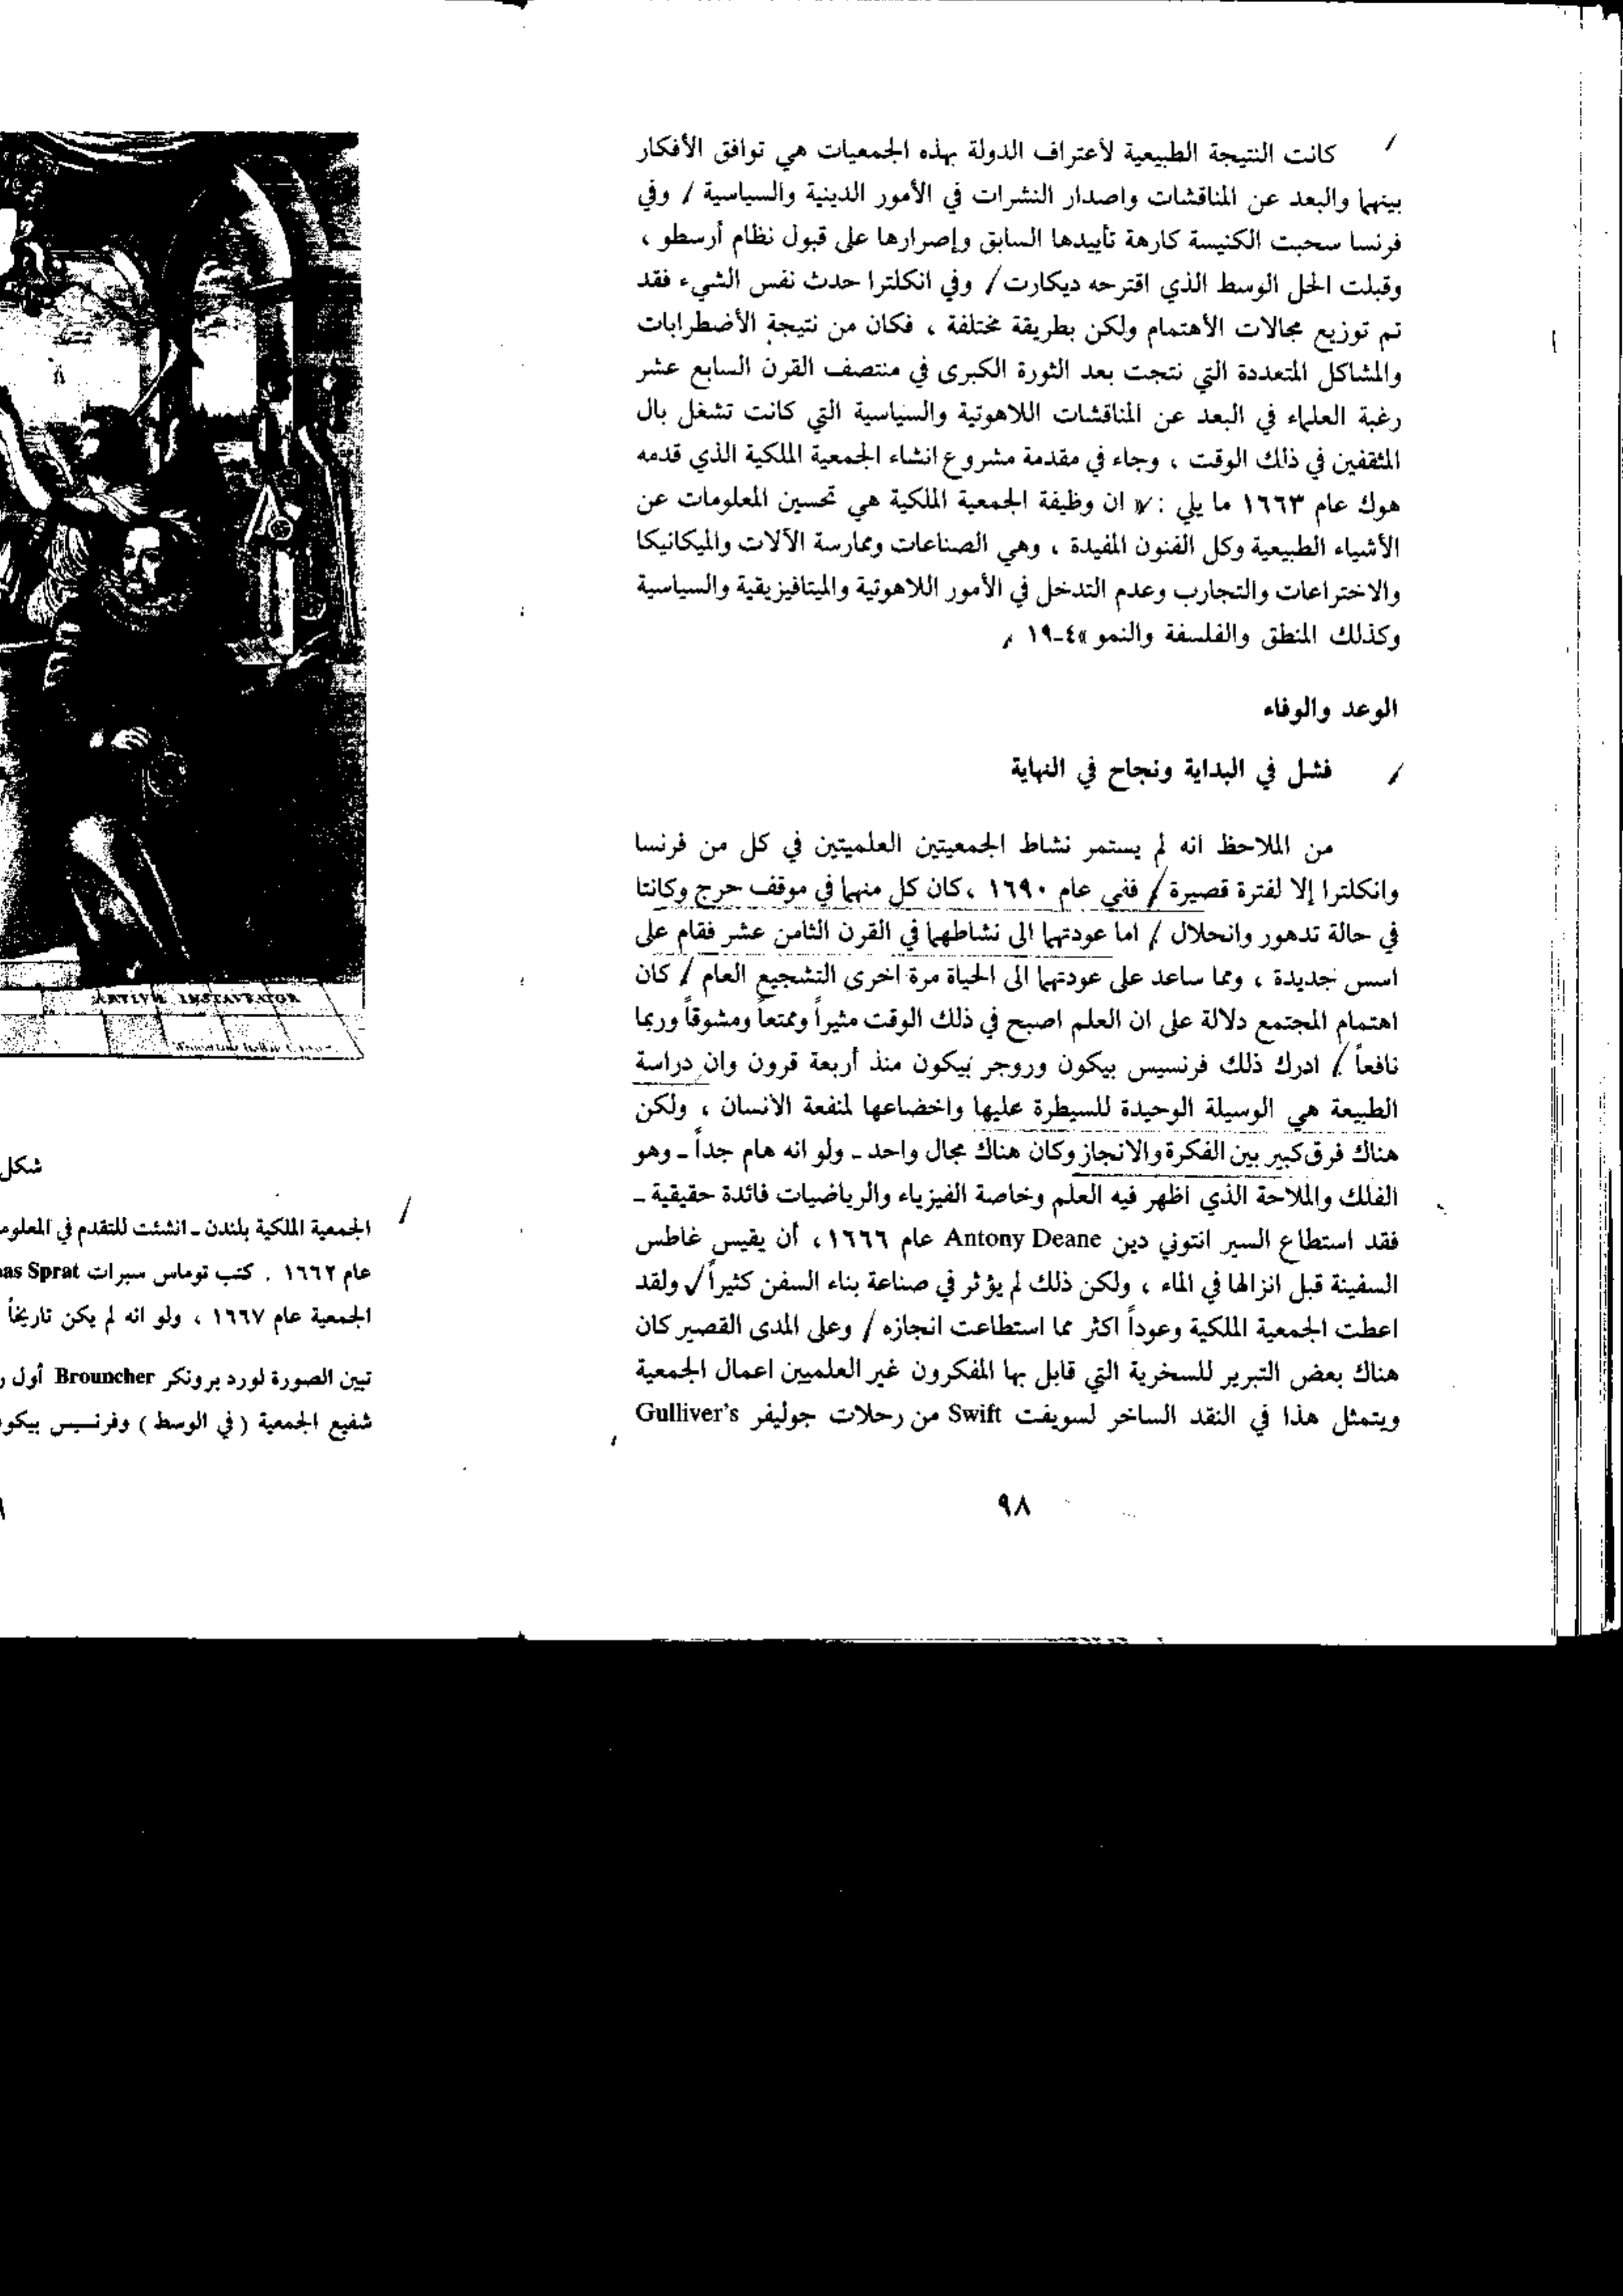 كانت النتيجة الطبيعية لأعتراف الدولة بهذه الجمعيات هي توافق الأفكار
بينهما والبعد عن المناقشات واصدار النشرات في الأمور الدينية والسياسية / وفي
فرنسا سحبت الكنيسة كارهة تأييدها السابق وإصرارها على قبول نظام أرسطو ،
وقبلت الحل الوسط الذي اقترحه ديكارت / وفي انكلترا حدث نفس الشيء فقد
تم توزيع مجالات الأهتمام ولكن بطريقة مختلفة ، فكان من نتيجة الأضطرابات
والمشاكل المتعددة التي نتجت بعد الثورة الكبرى في منتصف القرن السابع عشر
رغبة العلماء في البعد عن المناقشات اللاهوتية والسياسية التي كانت تشغل بال
المثقفين في ذلك الوقت ، وجاء في مقدمة مشروع انشاء الجمعية الملكية الذي قدمه
هوك عام ١٦٦٣ ما يلي : « ان وظيفة الجمعية الملكية هي تحسين المعلومات عن
الأشياء الطبيعية وكل الفنون المفيدة ، وهي الصناعات وممارسة الآلات والميكانيكا
والاختراعات والتجارب وعدم التدخل في الأمور اللاهوتية والميتافيزيقية والسياسية
وكذلك المنطق والفلسفة والنمو »٤-١٩
الوعد والوفاء
فشل في البداية ونجاح في النهاية
من الملاحظ انه لم يستمر نشاط الجمعيتين العلميتين في كل من فرنسا
وانكلترا إلا لفترة قصيرة / ففي عام ١٦٩٠ ، كان كل منهما في موقف حرج وكانتا
في حالة تدهور وانحلال / اما عودتهما الى نشاطهما في القرن الثامن عشر فقام على
اسس جديدة ، ومما ساعد على عودتهما الى الحياة مرة اخرى التشجيع العام / كان
اهتمام المجتمع دلالة على ان العلم اصبح في ذلك الوقت مثيراً وممتعاً ومشوقاً وربما
نافعاً / ادرك ذلك فرنسيس بيكون وروجر بيكون منذ أربعة قرون وان دراسة
الطبيعة هي الوسيلة الوحيدة للسيطرة عليها واخضاعها لمنفعة الانسان ، ولكن
هناك فرق كبير بين الفكرة والانجاز وكان هناك مجال واحد ـ ولو انه هام جداً ـ وهو
الفلك والملاحة الذي اظهر فيه العلم وخاصة الفيزياء والرياضيات فائدة حقيقية ـ
فقد استطاع السير انتوني دين Antony Deane عام ١٦٦٦ ، أن يقيس غاطس
السفينة قبل انزالها في الماء ، ولكن ذلك لم يؤثر في صناعة بناء السفن كثيراً / ولقد
اعطت الجمعية الملكية وعوداً اكثر مما استطاعت انجازه / وعلى المدى القصير كان
هناك بعض التبرير للسخرية التي قابل بها المفكرون غير العلميين اعمال الجمعية
ويتمثل هذا في النقد الساخر لسويفت Swift من رحلات جوليفر Gulliver's
٩٨
ARTIVM INSTAVRATOR
شكل
الجمعية الملكية بلندن ـ انشئت للتقدم في
عام ١٦٦٢ . كتب توماس سبرات as Sprat
الجمعية عام ١٦٦٧ ، ولو انه لم يكن تاريخاً
تبين الصورة لورد برونكر Brouncher أول
شفيع الجمعية ( في الوسط ) وفرنسيس بيكو